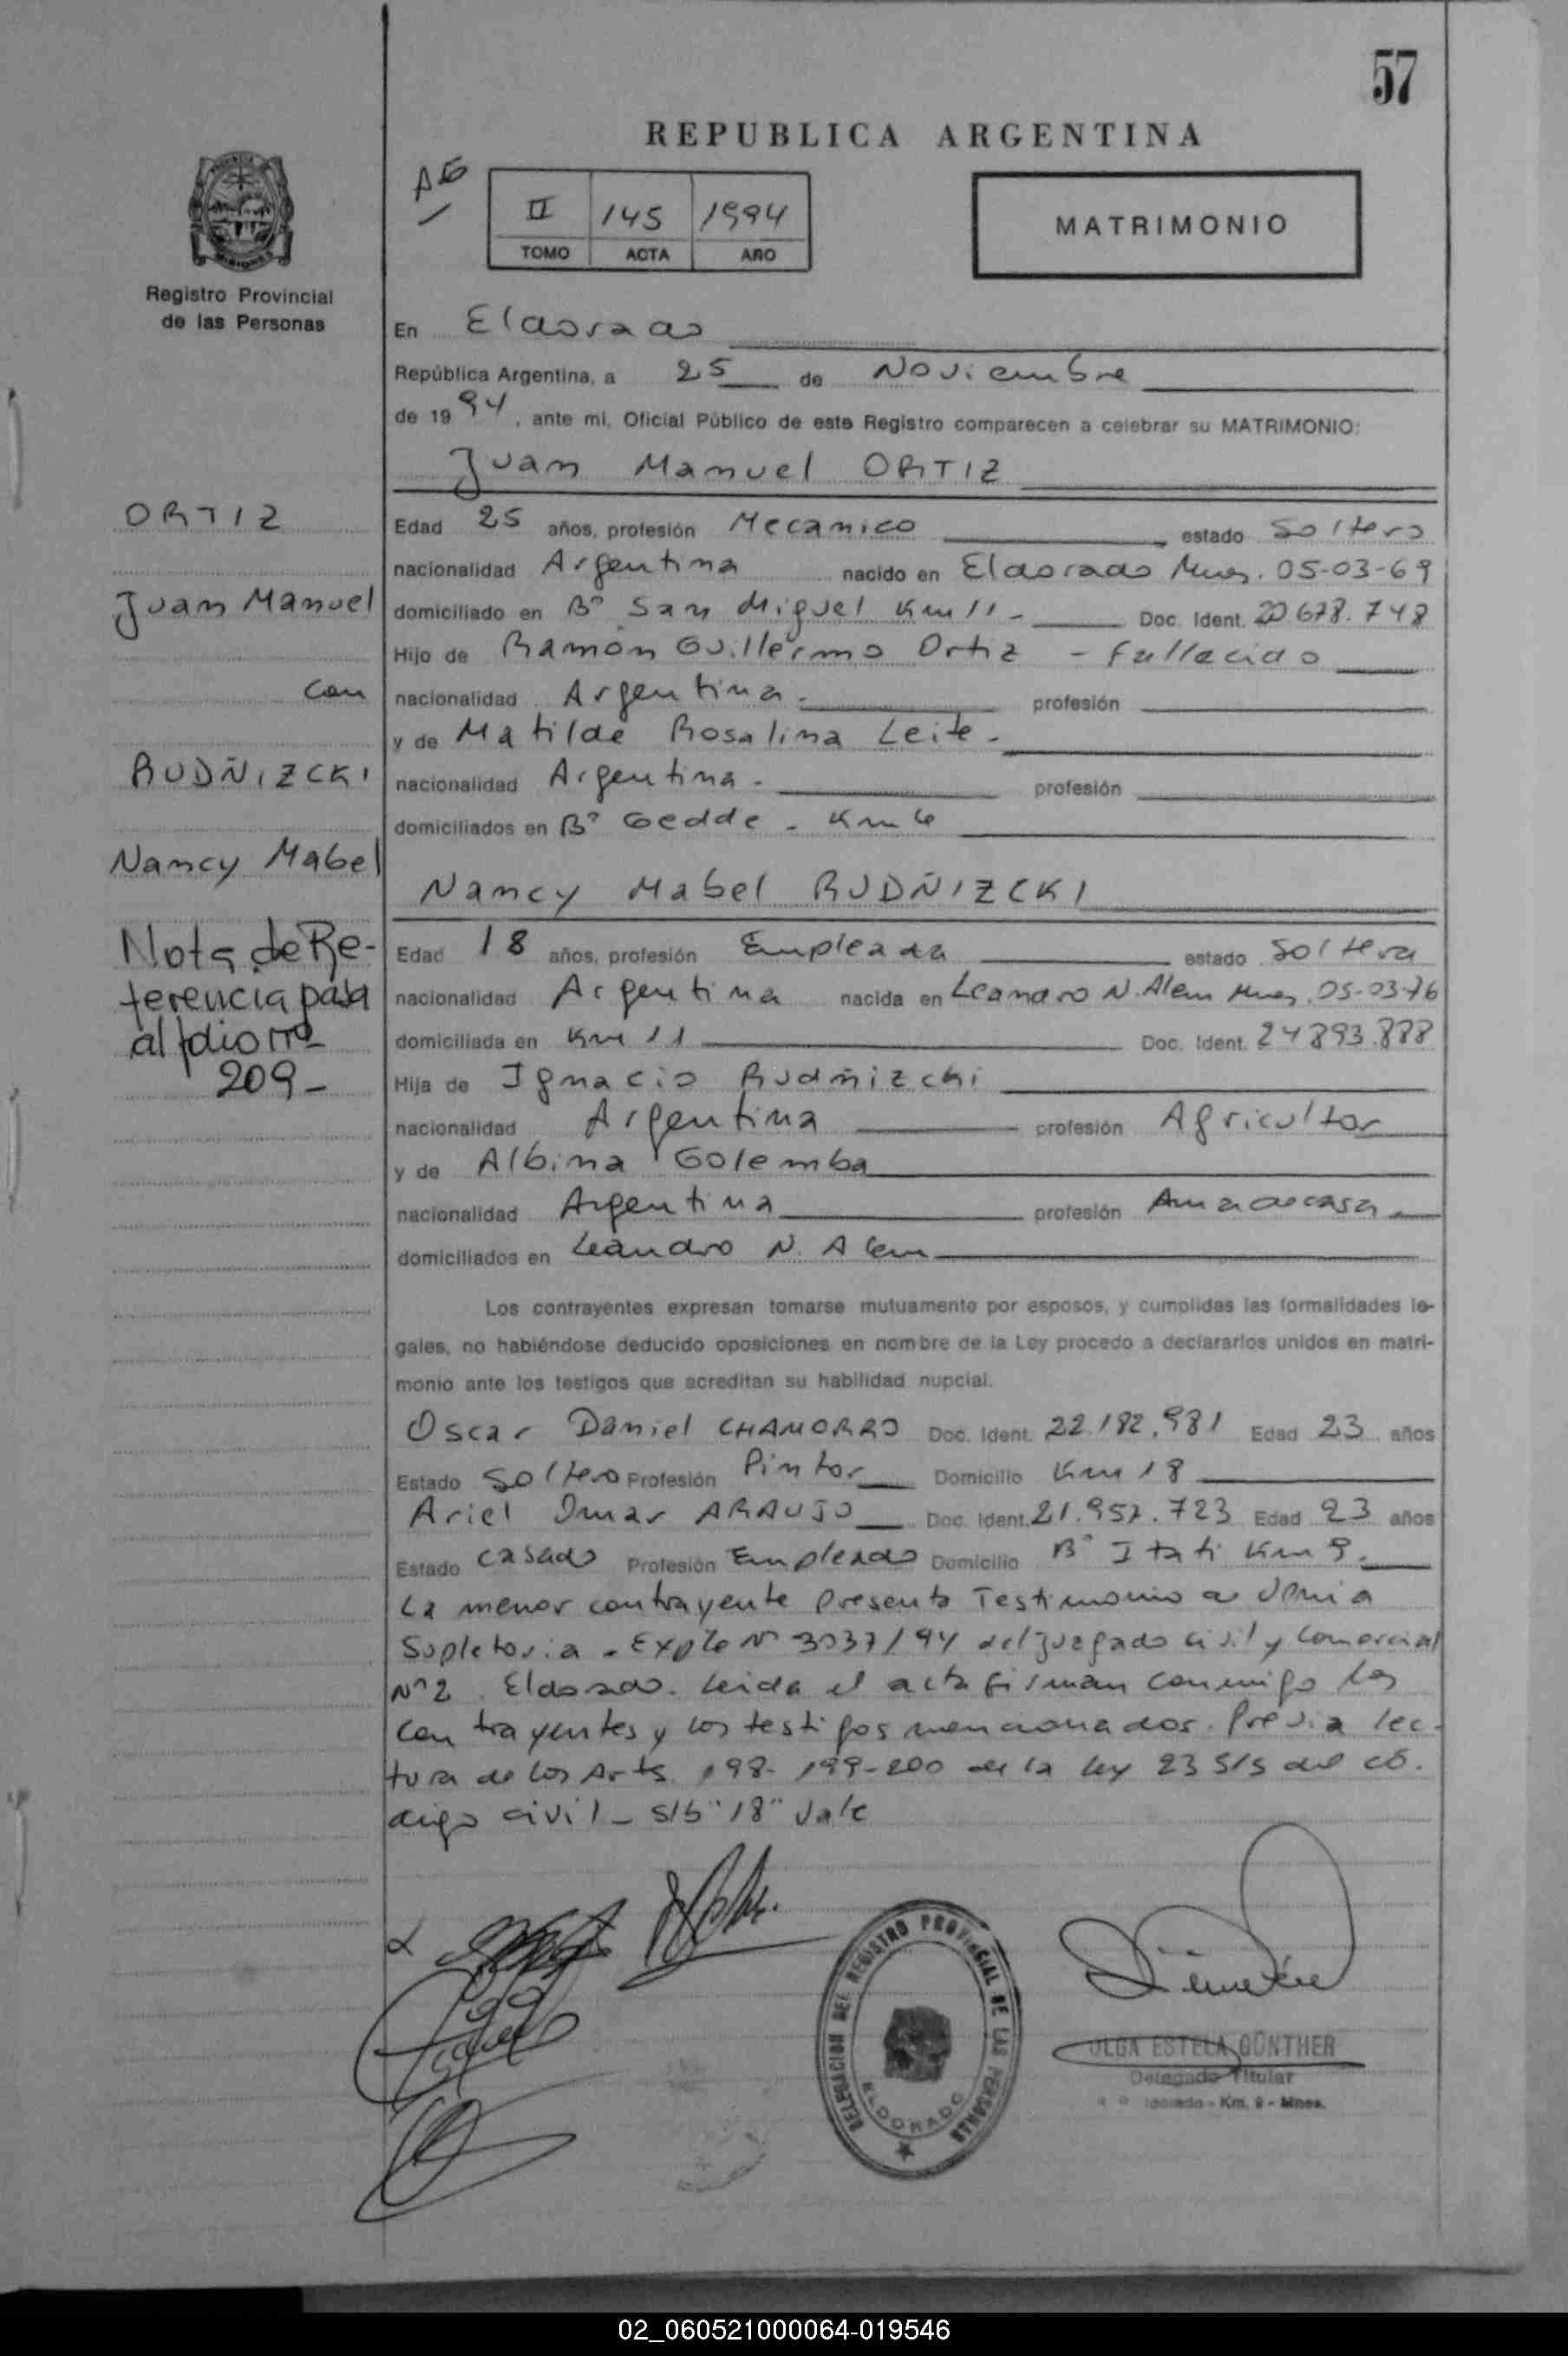 57
REPUBLICA ARGENTINA
II 145 1994
TOMO ACTA AÑO
MATRIMONIO
Registro Provincial
de las Personas
En Eldorado
República Argentina, a 25 de Noviembre
de 1994, ante mi, Oficial Público de este Registro comparecen a celebrar su MATRIMONIO:
Juan Manuel ORTIZ
ORTIZ
Juan Manuel
con
RUDÑIZCKI
Nancy Mabel
Nota de Re-
ferencia pasa
al folio nº
209-
Edad 25 años, profesión Mecanico estado Soltero
nacionalidad Argentina nacido en Eldorado Mnes. 05-03-69
domiciliado en Bº San Miguel Km 11 - Doc. Ident. 20.678.748
Hijo de Ramón Guillermo Ortiz - fallecido
nacionalidad Argentina - profesión
y de Matilde Rosalina Leite -
nacionalidad Argentina - profesión
domiciliados en Bº Gedde - Km 6
Nancy Mabel RUDÑIZCKI
Edad 18 años, profesión Empleada estado Soltera
nacionalidad Argentina nacida en Leandro N. Alem Mnes. 05-03-76
domiciliada en Km 11 Doc. Ident. 24.893.888
Hija de Ignacio Rudñizcki
nacionalidad Argentina profesión Agricultor
y de Albina Golemba
nacionalidad Argentina profesión Ama de casa
domiciliados en Leandro N. Alem
Los contrayentes expresan tomarse mutuamente por esposos, y cumplidas las formalidades le-
gales, no habiéndose deducido oposiciones en nombre de la Ley procedo a declararlos unidos en matri-
monio ante los testigos que acreditan su habilidad nupcial.
Oscar Daniel CHAMORRO Doc. Ident. 22.182.981 Edad 23 años
Estado Soltero Profesión Pintor Domicilio Km 18
Ariel Omar ARAUJO Doc. Ident. 21.957.723 Edad 23 años
Estado casado Profesión Empleado Domicilio Bº Itati Km 9.
La menor contrayente presenta Testimonio de Venia
Supletoria - Expte Nº 3037/94 del juzgado civil y Comercial
Nº 2 Eldorado. Leida el acta firman conmigo los
contrayentes y los testigos mencionados. Previa lec-
tura de los Arts. 198-199-200 de la ley 23.515 del có-
digo civil - S/b "18" Vale
DELEGACION DEL REGISTRO PROVINCIAL DE LAS PERSONAS
ELDORADO
OLGA ESTELA GÜNTHER
Delegado Titular
Km. 9 - Mnes.
02_060521000064-019546